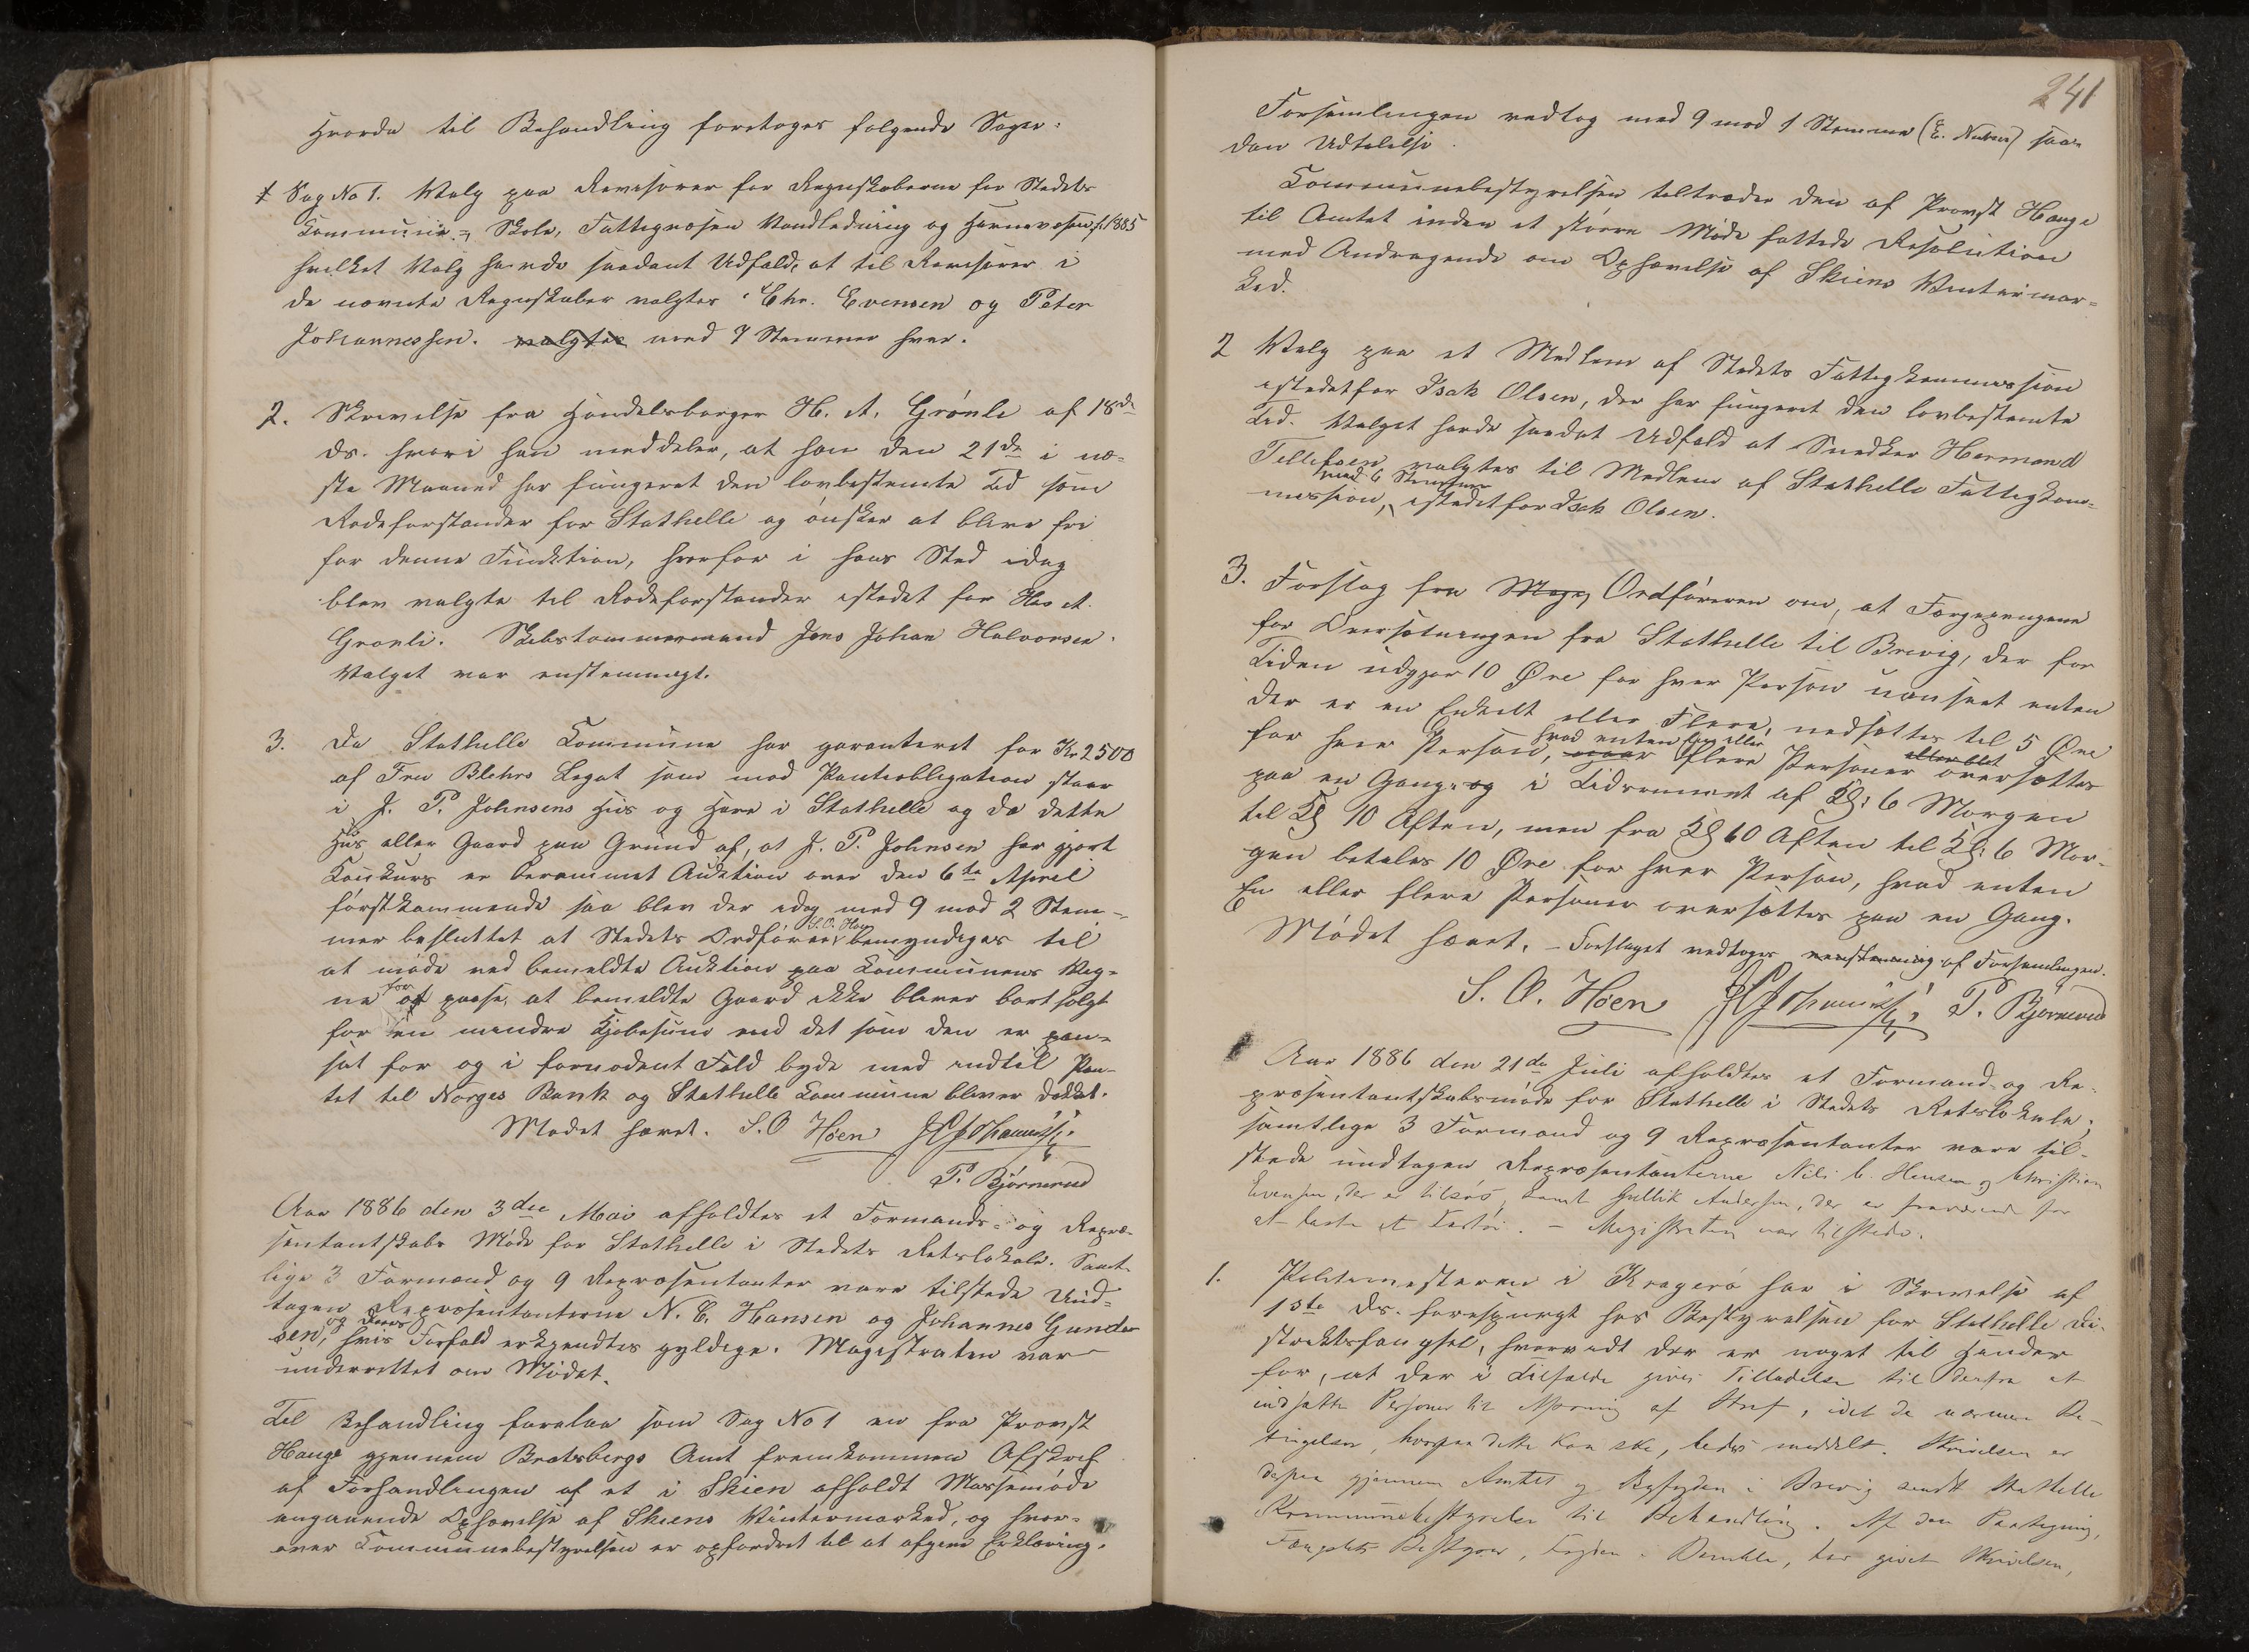 Hvorda til Behandling foretoges følgende Sager:
Sag No 1. Valg paa Revisorer for Regnskaberne for Stedets
Kommune-, Skole, Fattigvæsen Vandledning og Havnevæsen f. 1885
hvilket Valg havde saadant Udfald, at til Revisorer i
de nævnte Regnskaber valgtes Chr. Evensen og Peter
Johannessen. valgtes med 7 Stemmer hver.
2. Skrivelse fra Handelsborger H. A. Grönli af 18de
ds. hvori han meddeler, at han den 21de i næ-
ste Maaned har fungeret den lovbestemte Tid som
Rodeforstander for Stathelle og ønsker at blive fri
for denne Funktion, hvorfor i hans Sted idag
blev valgte til Rodeforstander istedet for Hans A.
Gronli. Skibstømmermand Jens Johan Halvorsen.
Valget var enstemmigt.
3. Da Stathelle Commune har garanteret for Kr 2500
af Fru Blehrs Legat som mod Panteobligation staar
i J. P. Johnsens Hus og Have i Stathelle og da dette
Hus eller Gaard paa Grund af, at J. P. Johnsen har gjort
Konkurs er berammet Auktion over den 6te April
førstkommende saa blev der idag med 9 mod 2 Stem-
mer besluttet at Stedets Ordfører S. O. Høen bemyndiges til
at møde ved bemeldte Auktion paa Communens Veg-
ne for at passe, at bemeldte Gaard ikke bliver bortsolgt
for en mindre Kjøbesum end det som den er pan-
sat for og i fornødent Fald byde med indtil Pan-
tet til Norges Bank og Stathelle Commune bliver dækket.
Mødet hævet. S. O Høen J P Johannessen
P. Bjørnerud
Aar 1886 den 3die Mai afholdtes et Formands- og Repræ-
sentantskabs Møde for Stathelle i Stedets Retslokale. Samt-
lige 3 Formænd og 9 Repræsentanter vare tilstede Und-
tagen Repræsentanterne N. C. Hansen og Johannes Gunder
sen, og deres hvis Forfald erkjendtes gyldige. Magistraten var
underrettet om Mødet.
Til Behandling forelaa som Sag No 1 en fra Provst
Hauge gjennem Bratsbergs Amt fremkommen Afskrift
af Forhandlingen af et i Skien afholdt Massemøde
angaaende Ophævelse af Skiens Vintermarked, og hvor-
over Communebestyrelsen er opfordret til at afgive Erklæring.
241
Forsamlingen vedtog med 9 mod 1 Stemme saa-
dan Udtalelse.
Communebestyrelsen tiltræder den af Provst Hauge
til Amtet inden et større Møde fattede Resolution
med Andragende om Ophævelse af Skiens Vintermar-
ked.
2 Valg paa et Medlem af Stedets Fattigkommission
istedetfor Isak Olsen, der har fungeret den lovbestemte
Tid. Valget havde saadat Udfald at Snedker Hermand
Tellefsen valgtes til Medlem af Stathelle Fattigkom-
mission, med 6 Stemmer istedetfor Isak Olsen.
3. Forslag fra Mag. Ordføreren om, at Færgepengene
for Oversætningen fra Stathelle til Brevig, der for
Tiden udgjør 10 Øre for hver Person uanseet enten
der er en Enkelt eller Flere, nedsættes til 5 Øre
for hver Person, hvad enten en eller flere Personer oversættes
paa en Gang, og i Tidsrummet af Kl: 6 Morgen
til Kl 10 Aften, men fra Kl 10 Aften til Kl: 6 Mor-
gen betales 10 Øre for hver Person, hvad enten
En eller flere Personer oversættes paa en Gang.
Mødet hævet. – Forslaget vedtoges eenstemmig af Forsamlingen.
S. O. Høen J P Johannessen P. Bjørnerud
Aar 1886 den 21de Juli afholdtes et Formand- og Re-
præsentantskabsmøde for Stathelle i Stedets Retslokale;
samtlige 3 Formænd og 9 Repræsentanter vare til-
stede undtagen Repræsentanterne Nils C. Hansen og Christian
Evensen, der er tilsøs, samt Gullik Andersen, der er fraværende for
at laste et Fartøi. – Magistraten var tilstede.
1. Politimesteren i Kragerø har i Skrivelse af
13te ds. forespurgt hos Bestyrelsen for Stathelle Di-
striktsfængsel, hvorvidt der er noget til Hinder
for, at der i Tilfælde gives Tilladelse til derfra at
indsætte Personer til Afsoning af Straf, idet de nærmere Be-
tingelser, hvorpaa dette kan ske, bedes meddelt. Skrivelsen er
derpaa gjennem Amtet og Byfogden i Brevig sendt Stathelle
Kommunebestyrelse til Behandling. Af den Paategning,
Fængslets Bestyrer, Fogden i Bamble, har givet Skrivelsen,